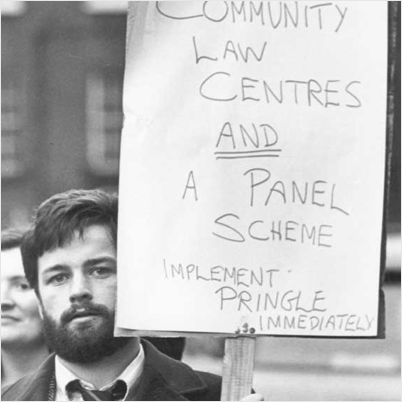 COMMUNITY
LAW
CENTRES
AND
A PANEL
SCHEME
IMPLEMENT
PRINGLE
IMMEDIATELY